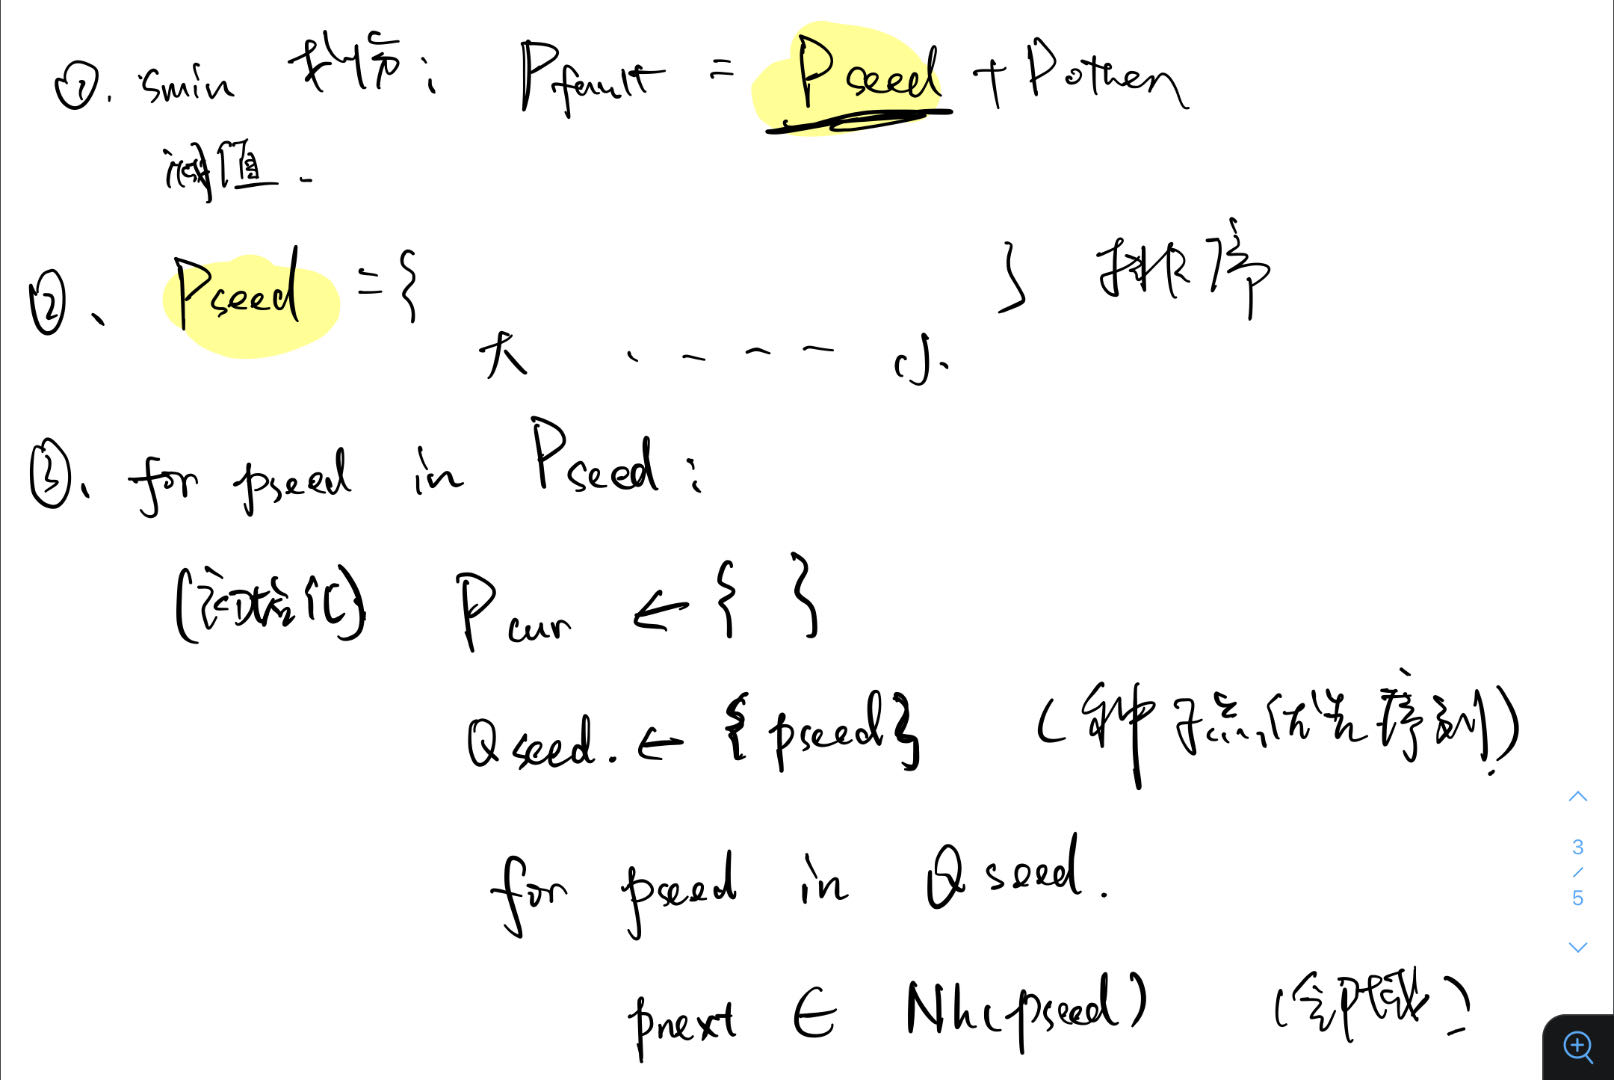 ①. smin 拆分: Pfault = Pseed + Pother
阈值.
②、 Pseed = { } 排序
大 . - - - 小.
③、 for pseed in Pseed:
(初始化) Pcur ← { }
Qseed. ← {pseed} (种子点优先序列).
for pseed in Qseed.
pnext ∈ Nh(pseed) (邻域)
3
/
5